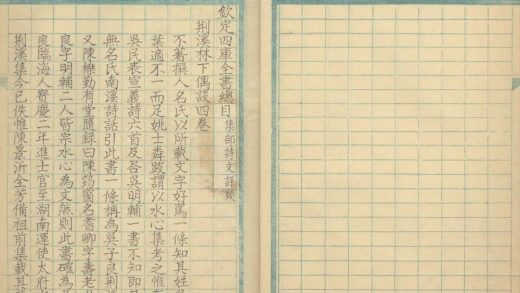 欽定四庫全書總目 集部詩文評類
荆溪林下偶談四卷
不著撰人名氏以所載文字好罵一條知其姓吳
葉適不一而足姚士粦跋謂以水心集考之惟有
吳氏表宣義詩六首及答吳明輔一書不知即其
無名氏南溪詩話引此書一條稱為吳子良荆溪
又陳櫟勤有堂隨録曰陳筠窗名耆卿字壽老
良字明輔二人皆宗水心為文然則此書確為
良臨海人寶慶二年進士官至湖南運使太府
荆溪集今已佚惟陳景沂全芳備祖前集載其